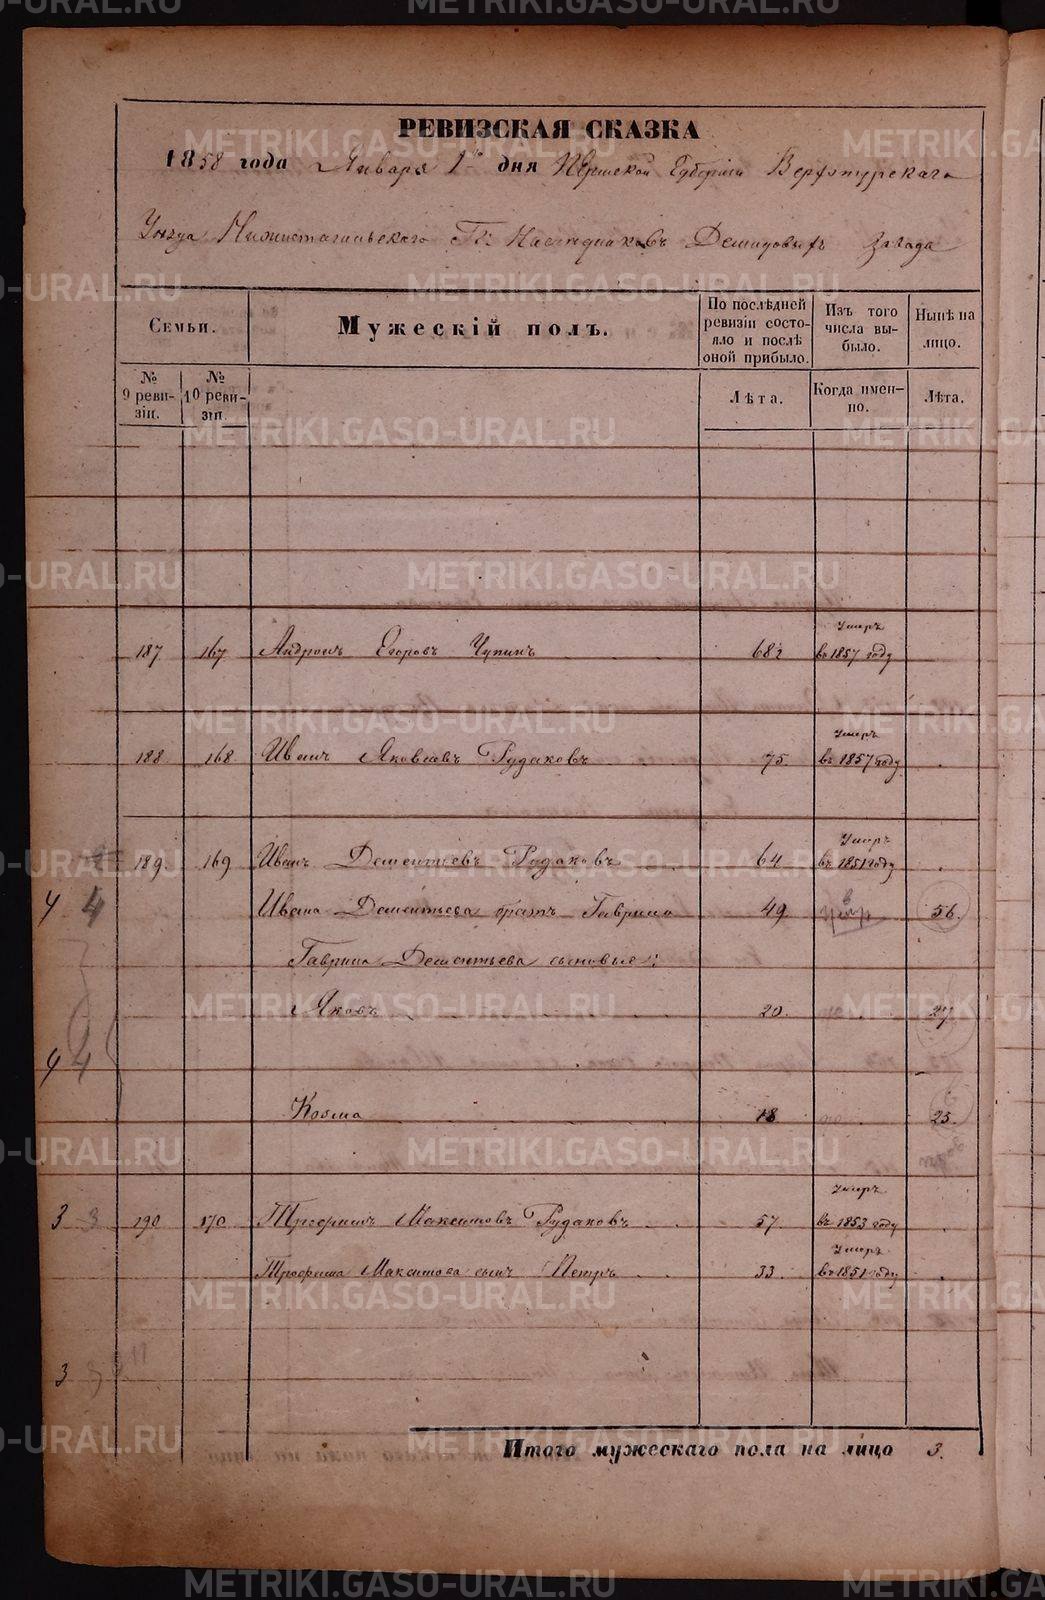 РЕВИЗСКАЯ СКАЗКА
1858 года Января 1го дня Пермской Губернiи Верхотурскаго
Уезда Нижнетагильскаго Гг. Наследниковъ Демидовыхъ Завода
Семьи.
Мужескiй полъ.
По послѣдней ревизiи состояло и послѣ оной прибыло.
Изъ того числа выбыло.
Нынѣ на лицо.
№ 9 ревизiи.
№ 10 ревизiи.
Лѣта.
Когда именно.
Лѣта.
187 167 Андронъ Егоровъ Чупинъ 68 умеръ въ 1857 году
188 168 Иванъ Яковлевъ Рудаковъ 75. умеръ въ 1857 году
189 169 Иванъ Дементьевъ Рудаковъ 64 умеръ въ 1851 году
4 4 Ивана Дементьева братъ Гаврило 49 56.
Гаврила Дементьева сыновья:
Яковъ 20. 27
4 4
Козма 18 25.
3 3 190 170 Трофимъ Максимовъ Рудаковъ 57. умеръ въ 1853 году
Трофима Максимова сынъ Петръ 33. умеръ въ 1851 году
3
Итого мужескаго пола на лицо 3.
METRIKI.GASO-URAL.RU